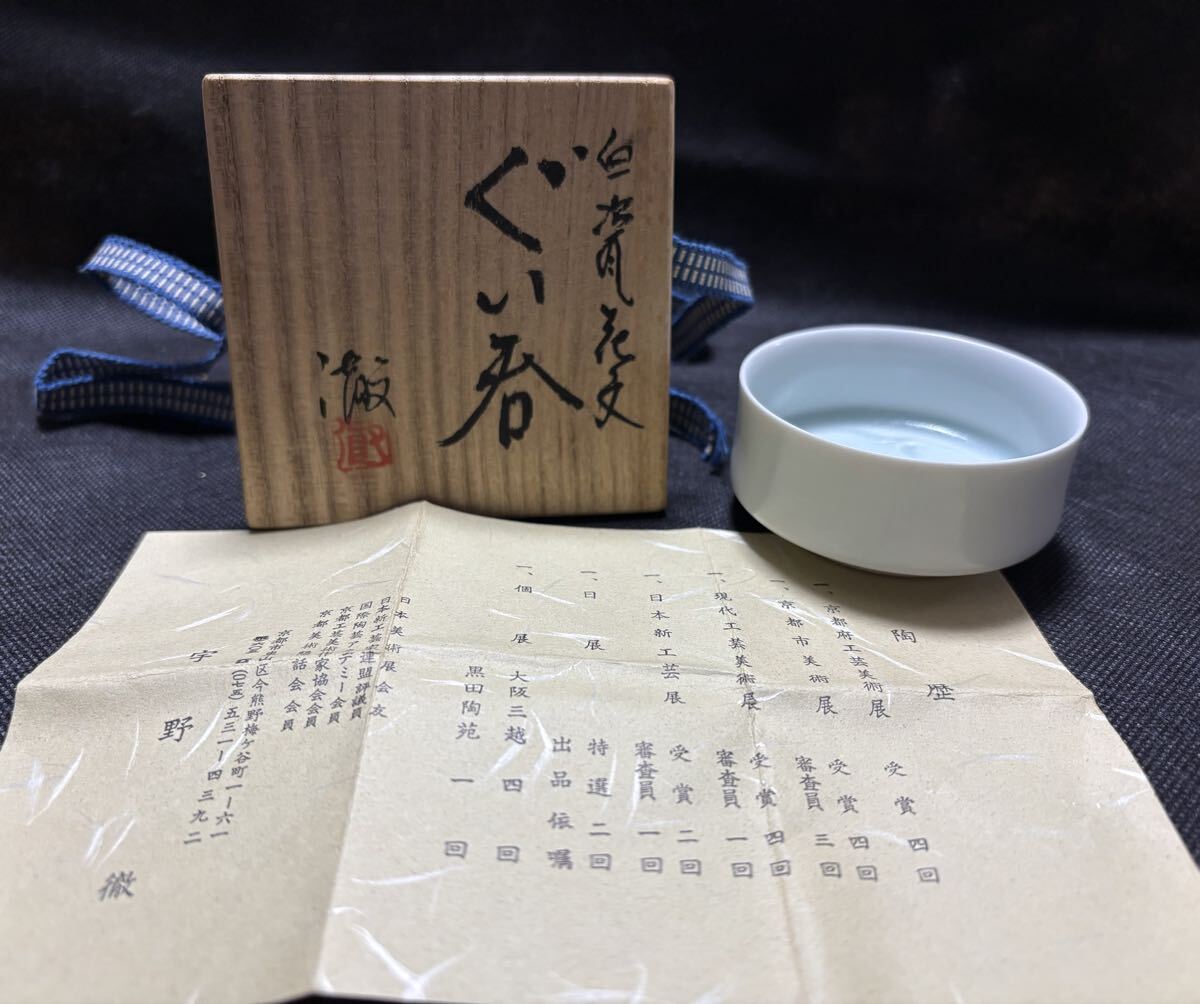 白瓷花文
ぐい呑
徹
陶歴
一、京都府工芸美術展 受賞 四回
一、京都市美術展 受賞 四回
審査員 三回
一、現代工芸美術展 受賞 四回
審査員 一回
一、日本新工芸展 受賞 二回
審査員 一回
一、日展 特選 二回
出品依嘱
一、個展 大阪三越 四回
黒田陶苑 一回
日本美術展会友
日本新工芸家連盟評議員
国際陶芸アカデミー会員
京都工芸美術作家協会会員
京都美術懇話会会員
京都市東山区今熊野梅ケ谷町一ー六一
(〇七五)五三一ー四三九二
宇野 徹